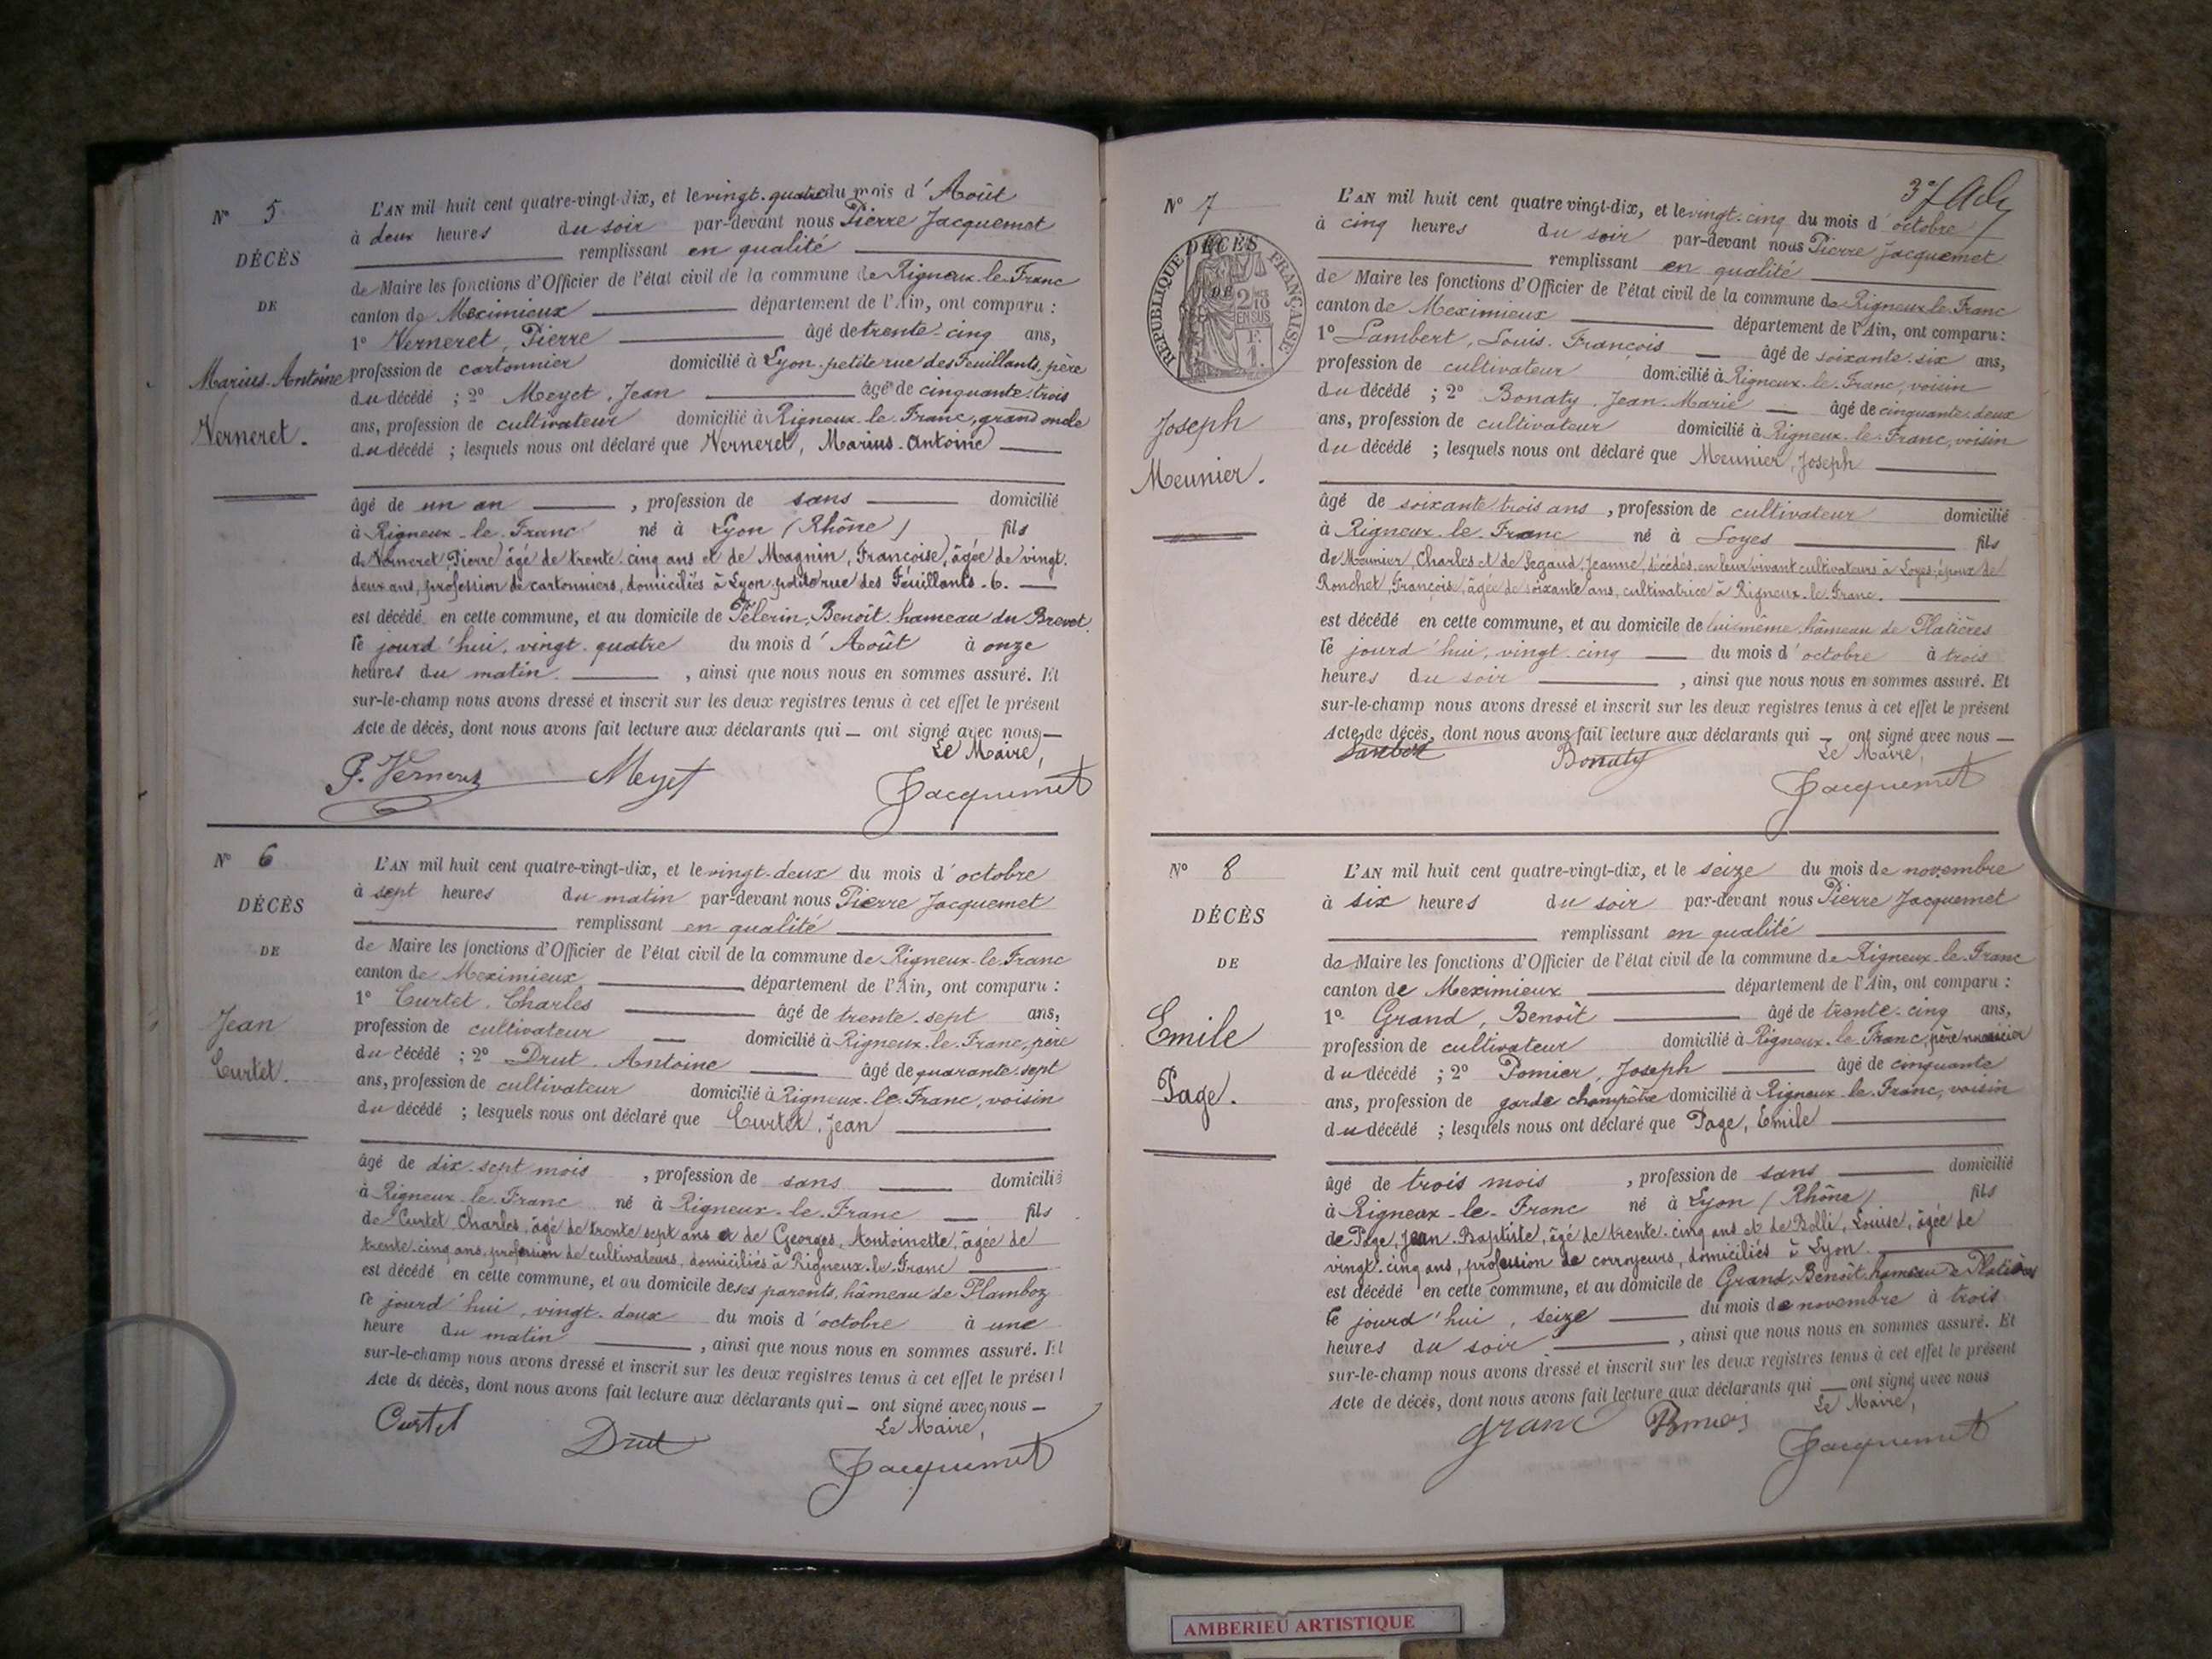 N° 5
DÉCÈS
DE
Marius-Antoine
Verneret.
L'AN mil huit cent quatre-vingt-dix, et le vingt-quatre du mois d'Août
à deux heures du soir par-devant nous Pierre Jacquemet
remplissant en qualité
de Maire les fonctions d'Officier de l'état civil de la commune de Rigneux-le-Franc
canton de Meximieux département de l'Ain, ont comparu :
1° Verneret, Pierre âgé de trente-cinq ans,
profession de cartonnier domicilié à Lyon, petite rue des Feuillants, père
du décédé ; 2° Meyet, Jean âgé de cinquante-trois
ans, profession de cultivateur domicilié à Rigneux-le-Franc, grand oncle
du décédé ; lesquels nous ont déclaré que Verneret, Marius-Antoine
âgé de un an , profession de sans domicilié
à Rigneux-le-Franc né à Lyon (Rhône) fils
de Verneret Pierre âgé de trente-cinq ans et de Magnin, Françoise, âgée de vingt-
deux ans, profession de cartonniers, domiciliés à Lyon petite rue des Feuillants-6.
est décédé en cette commune, et au domicile de Pélerin, Benoît, hameau du Brevet
le jourd'hui, vingt-quatre du mois d'Août à onze
heures du matin , ainsi que nous nous en sommes assuré. Et
sur-le-champ nous avons dressé et inscrit sur les deux registres tenus à cet effet le présent
Acte de décès, dont nous avons fait lecture aux déclarants qui ont signé avec nous
Le Maire,
P. Verneret Meyet Jacquemet
N° 6
DÉCÈS
DE
Jean
Curtet.
L'AN mil huit cent quatre-vingt-dix, et le vingt-deux du mois d'octobre
à sept heures du matin par-devant nous Pierre Jacquemet
remplissant en qualité
de Maire les fonctions d'Officier de l'état civil de la commune de Rigneux-le-Franc
canton de Meximieux département de l'Ain, ont comparu :
1° Curtet, Charles âgé de trente-sept ans,
profession de cultivateur domicilié à Rigneux-le-Franc, père
du décédé ; 2° Drut, Antoine âgé de quarante-sept
ans, profession de cultivateur domicilié à Rigneux-le-Franc, voisin
du décédé ; lesquels nous ont déclaré que Curtet, Jean
âgé de dix-sept mois , profession de sans domicilié
à Rigneux-le-Franc né à Rigneux-le-Franc fils
de Curtet, Charles, âgé de trente sept ans et de Georges, Antoinette, âgée de
trente-cinq ans, profession de cultivateurs, domiciliés à Rigneux-le-Franc
est décédé en cette commune, et au domicile de ses parents, hâmeau de Plamboz
le jourd'hui, vingt-deux du mois d'octobre à une
heure du matin , ainsi que nous nous en sommes assuré. Et
sur-le-champ nous avons dressé et inscrit sur les deux registres tenus à cet effet le présent
Acte de décès, dont nous avons fait lecture aux déclarants qui ont signé avec nous
Le Maire,
Curtet Drut Jacquemet
N° 7
RÉPUBLIQUE FRANÇAISE
DÉCÈS
DE
2/10 EN SUS
Joseph
Meunier.
L'AN mil huit cent quatre vingt-dix, et le vingt-cinq du mois d'octobre
à cinq heures du soir par-devant nous Pierre Jacquemet
remplissant en qualité
de Maire les fonctions d'Officier de l'état civil de la commune de Rigneux le Franc
canton de Meximieux département de l'Ain, ont comparu :
1° Lambert, Louis-François âgé de soixante-six ans,
profession de cultivateur domicilié à Rigneux-le-Franc, voisin
du décédé ; 2° Bonaty, Jean-Marie âgé de cinquante-deux
ans, profession de cultivateur domicilié à Rigneux-le-Franc, voisin
du décédé ; lesquels nous ont déclaré que Meunier, Joseph
âgé de soixante trois ans , profession de cultivateur domicilié
à Rigneux-le-Franc né à Loyes fils
de Meunier, Charles et de Segaud, Jeanne, décédés, en leur vivant cultivateurs à Loyes, époux de
Ronchet, François, âgée de soixante ans, cultivatrice à Rigneux-le-Franc.
est décédé en cette commune, et au domicile de lui même, hâmeau de Platières
le jourd'hui, vingt-cinq du mois d'octobre à trois
heures du soir , ainsi que nous nous en sommes assuré. Et
sur-le-champ nous avons dressé et inscrit sur les deux registres tenus à cet effet le présent
Acte de décès, dont nous avons fait lecture aux déclarants qui ont signé avec nous
Le Maire,
Lambert Bonaty Jacquemet
N° 8
DÉCÈS
DE
Emile
Page.
L'AN mil huit cent quatre-vingt-dix, et le seize du mois de novembre
à six heures du soir par-devant nous Pierre Jacquemet
remplissant en qualité
de Maire les fonctions d'Officier de l'état civil de la commune de Rigneux-le-Franc
canton de Meximieux département de l'Ain, ont comparu :
1° Grand, Benoît âgé de trente-cinq ans,
profession de cultivateur domicilié à Rigneux-le-Franc, père nourricier
du décédé ; 2° Pomier, Joseph âgé de cinquante
ans, profession de garde champêtre domicilié à Rigneux-le-Franc, voisin
du décédé ; lesquels nous ont déclaré que Page, Emile
âgé de trois mois , profession de sans domicilié
à Rigneux-le-Franc né à Lyon (Rhône) fils
de Page, Jean-Baptiste, âgé de trente-cinq ans et de Bolli, Louise, âgée de
vingt-cinq ans, profession de corroyeurs, domiciliés à Lyon.
est décédé en cette commune, et au domicile de Grand, Benoît, hameau de Platières
le jourd'hui, seize du mois de novembre à trois
heures du soir , ainsi que nous nous en sommes assuré. Et
sur-le-champ nous avons dressé et inscrit sur les deux registres tenus à cet effet le présent
Acte de décès, dont nous avons fait lecture aux déclarants qui ont signé avec nous
Le Maire,
Grand Pomier Jacquemet
AMBERIEU ARTISTIQUE